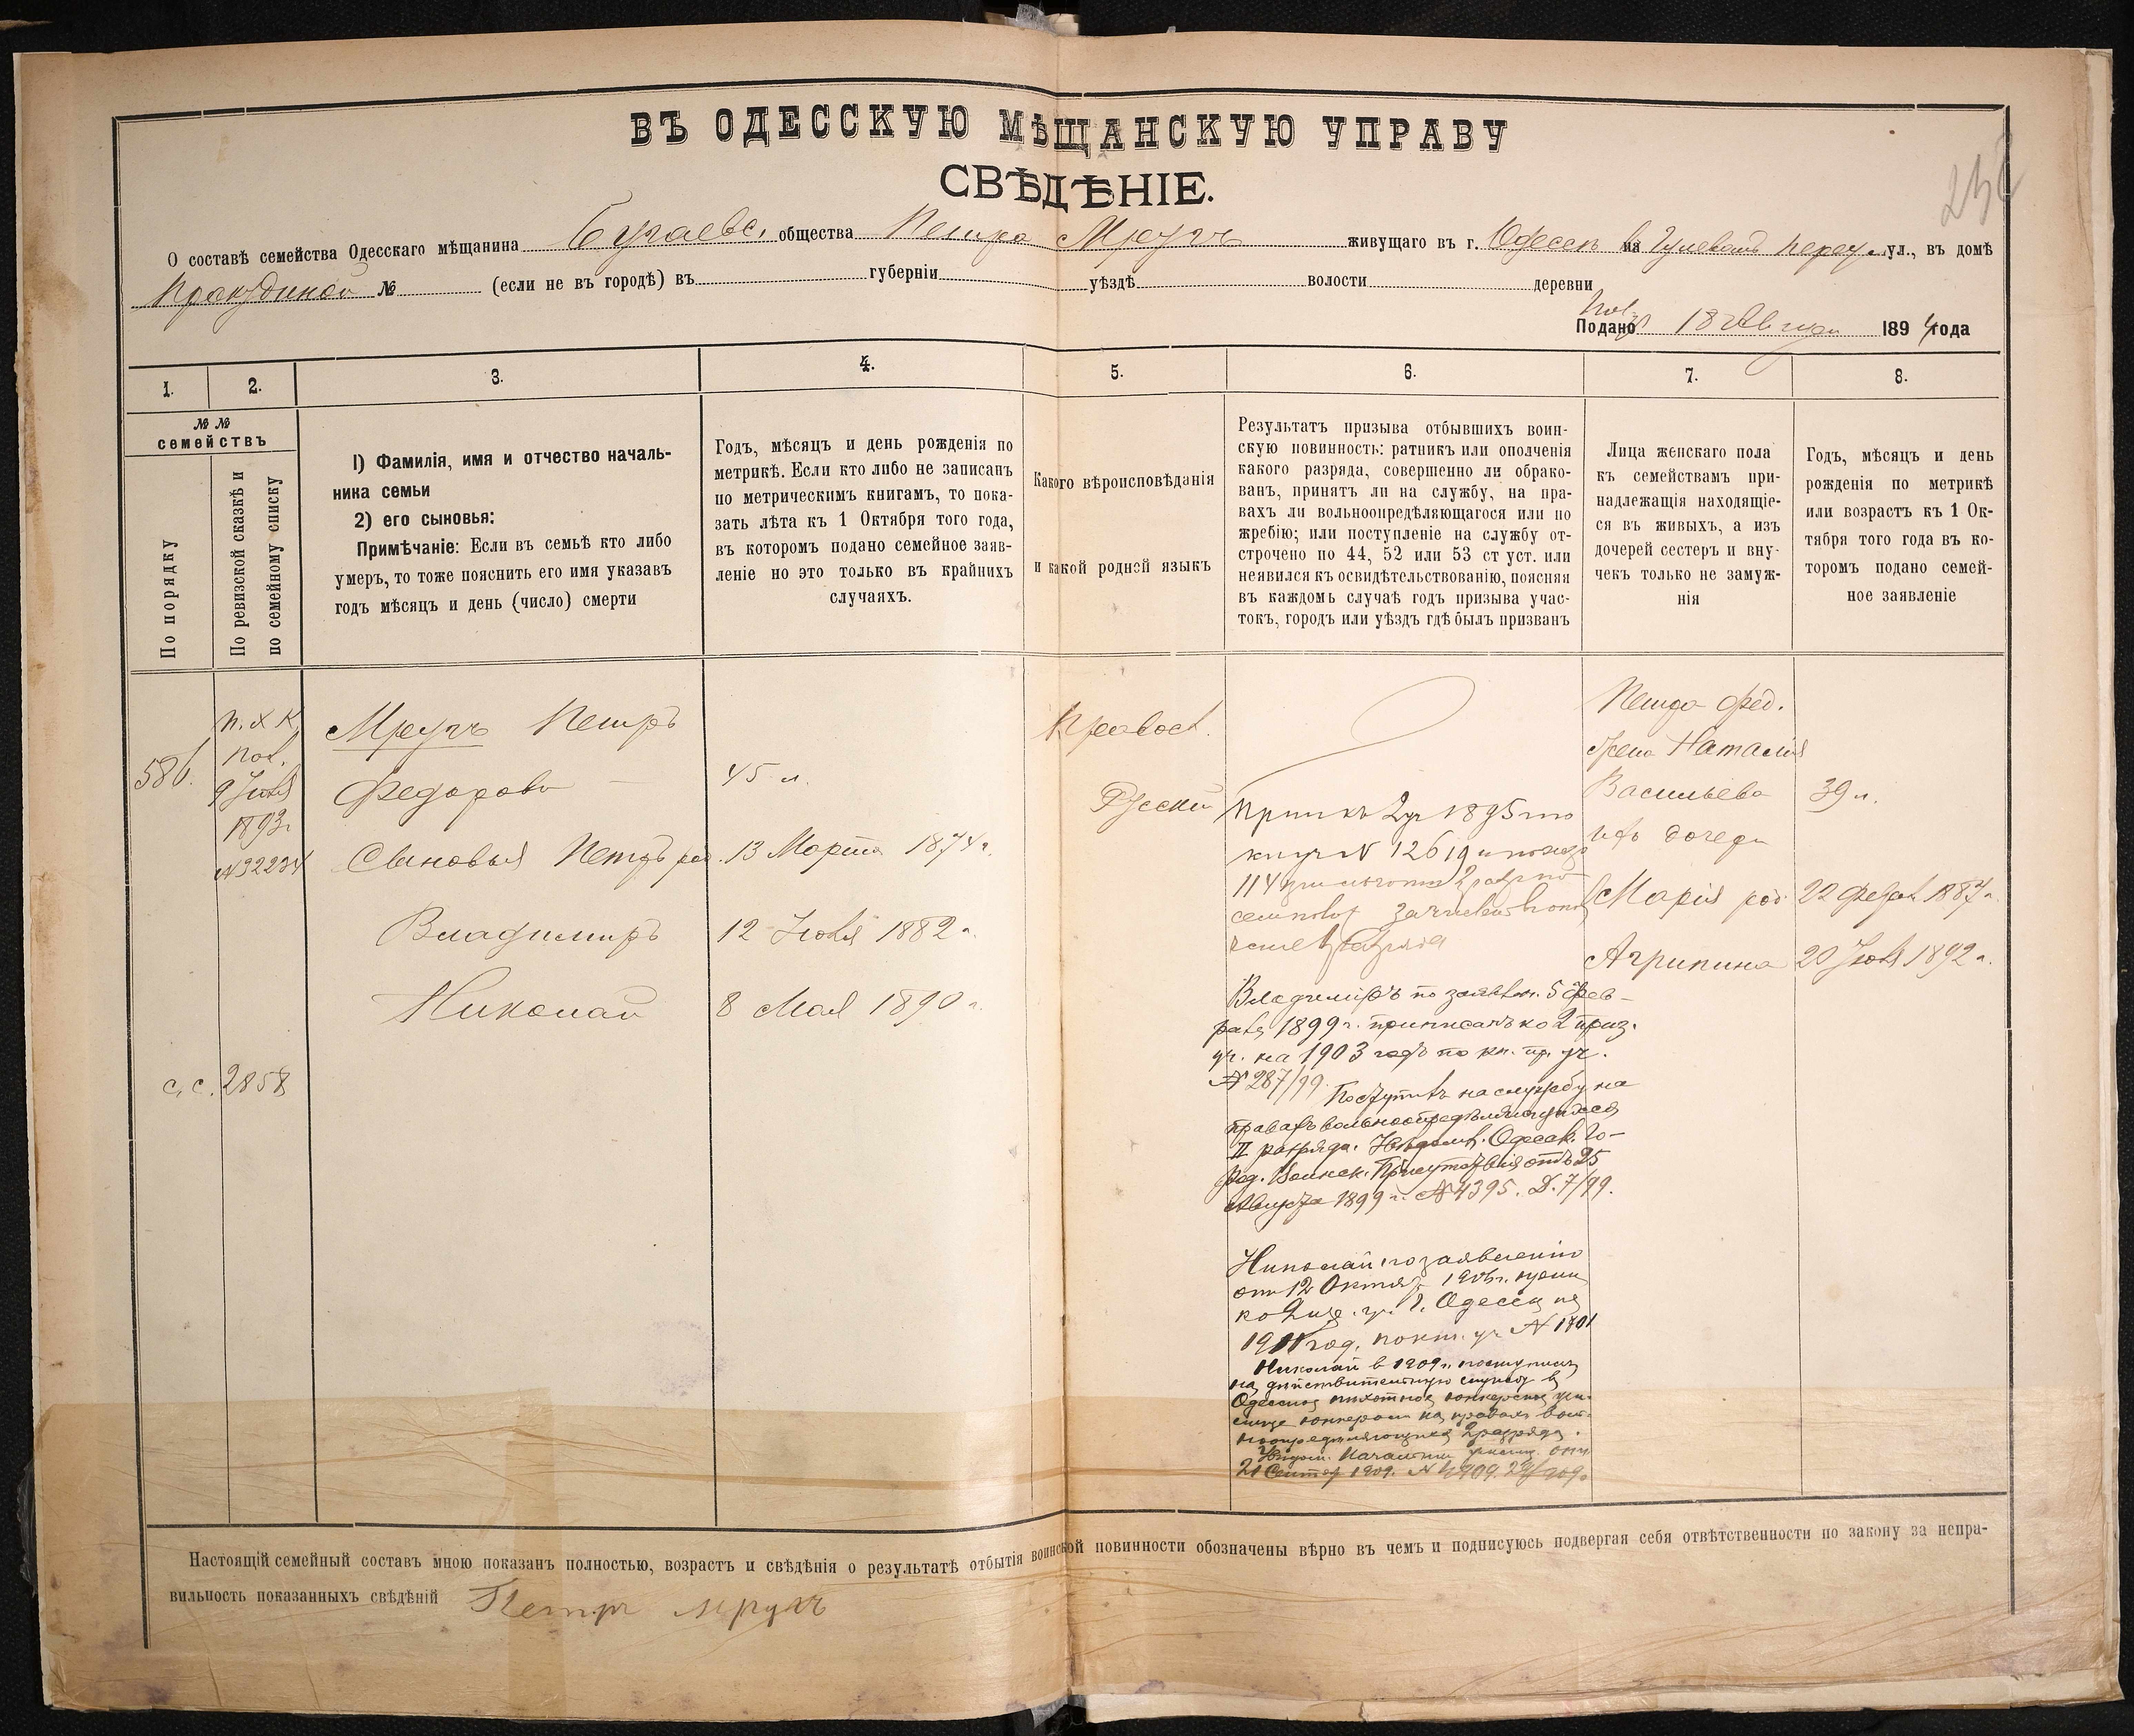 ВЪ ОДЕССКУЮ МѢЩАНСКУЮ УПРАВУ
СВѢДѢНІЕ.
О составѣ семейства Одесскаго мѣщанина Бугаевс. общества Петра Мрухъ живущаго въ г. Одессѣ на ул., въ домѣ
№ (если не въ городѣ) въ губерніи уѣздѣ волости деревни
Подано 18 1894 года
1. 2. 3. 4. 5. 6. 7. 8.
№ № семействъ
По порядку
По ревизской сказкѣ и по семейному списку
1) Фамилія, имя и отчество началь-
ника семьи
2) его сыновья:
Примѣчаніе: Если въ семьѣ кто либо
умеръ, то тоже пояснить его имя указавъ
годъ мѣсяцъ и день (число) смерти
Годъ, мѣсяцъ и день рожденія по
метрикѣ. Если кто либо не записанъ
по метрическимъ книгамъ, то пока-
зать лѣта къ 1 Октября того года,
въ которомъ подано семейное заяв-
леніе но это только въ крайнихъ
случаяхъ.
Какого вѣроисповѣданія
и какой родной языкъ
Результатъ призыва отбывшихъ воин-
скую повинность: ратникъ или ополченія
какого разряда, совершенно ли обрако-
ванъ, принятъ ли на службу, на пра-
вахъ ли вольноопредѣляющагося или по
жребію; или поступленіе на службу от-
строчено по 44, 52 или 53 ст уст. или
неявился къ освидѣтельствованію, поясняя
въ каждомъ случаѣ годъ призыва учас-
токъ, городъ или уѣздъ гдѣ былъ призванъ
Лица женскаго пола
къ семействамъ при-
надлежащія находящіе-
ся въ живыхъ, а изъ
дочерей сестеръ и вну-
чекъ только не замуж-
нія
Годъ, мѣсяцъ и день
рожденія по метрикѣ
или возрастъ къ 1 Ок-
тября того года въ ко-
торомъ подано семей-
ное заявленіе
586.
п. х к.
пов.
9 Іюля
1893г
№32234
с. с. 2858
Мрухъ Петръ
Федоровъ 45 л.
Сыновья Петръ род. 13 Марта 1874 г.
Владимиръ 12 Іюля 1882 г.
Николай 8 Мая 1890 г.
Правосл.
Русскій
1895
№ 12619
114
Владимиръ по заявлен. 5 Фев-
раля 1899 г. приписанъ ко 2 приз.
уч. на 1903 годъ по кн. пр. уч.
№ 287/99. Поступилъ на службу на
правахъ вольноопредѣляющагося
II разряда. Увѣдомл. Одесск. Го-
род. Воинск. Присутствія отъ 25
Августа 1899 г. № 4395. Д. 7/99.
Николай по заявленію
отъ 12 Октяб. 1906 г. припи
ко 2 приз. уч. г. Одессы на
1911 год. по кн. уч. № 1701
Николай в 1909 г. поступилъ
на дѣйствительную службу въ
Одесское пѣхотное юнкерское учи-
лище юнкеромъ на правахъ воль-
ноопредѣляющагося 2 разряда.
Увѣдом. Начальник училищ. отъ
21 Сентяб 1909.
Петра Фед.
жена Наталія
Васильева 39 л.
ихъ дочери
Марія род. 22 Февр. 1887 г.
Агрипина 20 Іюля 1892 г.
Настоящій семейный составъ мною показанъ полностью, возрастъ и свѣдѣнія о результатѣ отбытія воинской повинности обозначены вѣрно въ чемъ и подписуюсь подвергая себя отвѣтственности по закону за непра-
вильность показанныхъ свѣдѣній Петръ Мрухъ